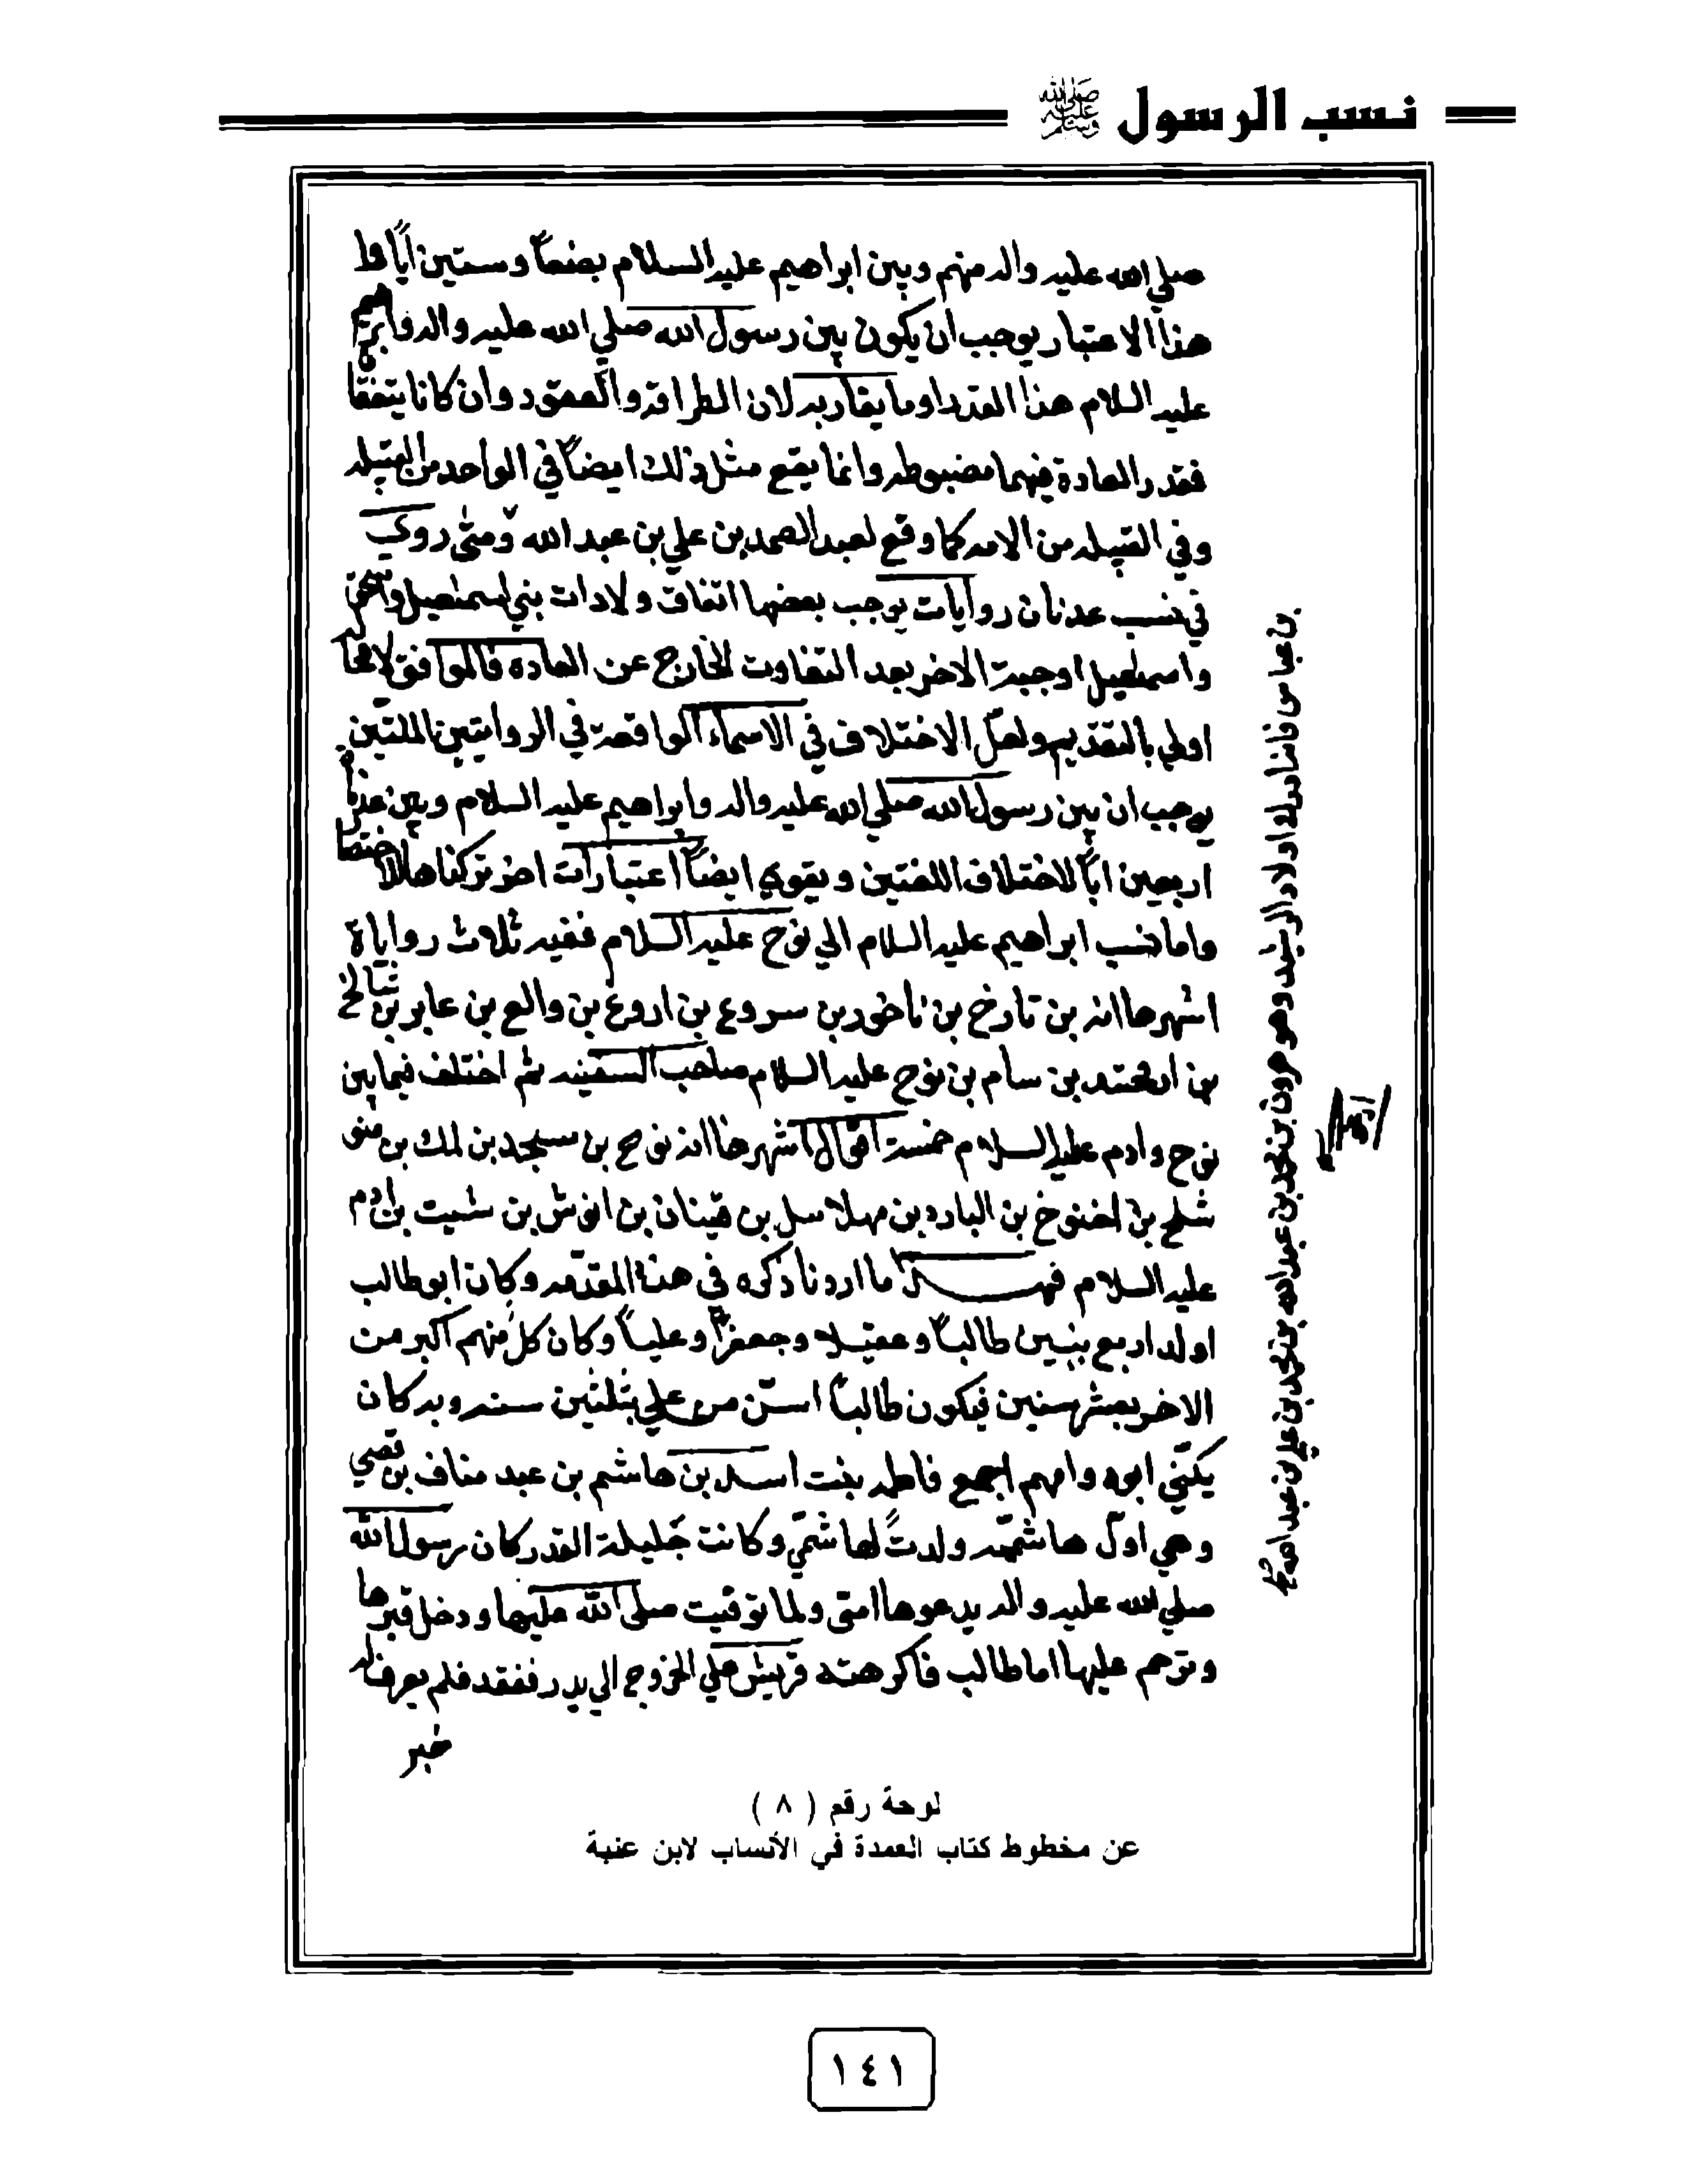 نسب الرسول ﷺ
صلي الله عليه واله منهم وبين ابراهيم عليه السلام بضعاً وستين اباً وط
هذا الاعتبار يوجب ان يكون بين رسول الله صلي الله عليه واله وابرهيم
عليه السلام هذا العدد او ما يقاربه لان الطرافة والعقود وان كانا يتفقا
فقدر العادة فيهما مضبوطه وانما يقع مثل ذلك ايضاً في الواحد من القبيله
وفي القبيله من الامه كما وقع لعبد الصمد بن علي بن عبد الله ومتى روي
في نسب عدنان روايات يوجب بعضها اتفاق ولادات بني اسمعيل واسحق
واسمعيل اوجبت الاخر بعد التفاوت الخارج عن العاده فالموافق لا محا
اولي بالتقديم ولعل الاختلاف في الاسماء الواقعة في الروايتين اللتين
يوجب ان بين رسول الله صلي الله عليه واله وابراهيم عليه السلام وبين عدنا
اربعين اباً لاختلاف اللغتين ويقوي ايضاً اعتبارات اخر تركناها للاختصا
واما نسب ابراهيم عليه السلام الي نوح عليه السلام ففيه ثلاث رواياة
اشهرها انه بن تارخ بن ناخور بن سروع بن اروغ بن والع بن عابر بن شالخ
بن ارفخشد بن سام بن نوح عليه السلام صاحب السفينه ثم اختلف فيما بين
نوح وادم عليه السلام خمسة اقوال اشهرها انه نوح بن سبجد بن لمك بن متو
شلح بن اخنوخ بن البارد بن مهلاسل بن قينان بن انوش بن شيت بن ادم
عليه السلام فهذا ما اردنا ذكره في هذه المقدمه وكان ابو طالب
اولد اربع بنيين طالباً وعقيلا وجعفراً وعلياً وكان كل منهم اكبر من
الاخر بعشر سنين فيكون طالباً اسن من علي بثلثين سنه وبه كان
يكنّي ابوه وامهم اجمع فاطمه بنت اسد بن هاشم بن عبد مناف بن قصي
وهي اوّل هاشميّه ولدت لهاشميّ وكانت جليلة القدر كان رسول الله
صلي الله عليه واله يدعوها امتى ولما توفيت صلى الله عليها ودخل قبرها
وترحم عليها اما طالب فاكرهته قريش علي الخروج الي بدر ففقد فلم يعرف له
خبر
بن عباس فانما ولاه اولاد الرشيد وهو هرون بن محمد بن عبد الله بن محمد بن علي بن عبد الله
لوحة رقم ( ٨ )
عن مخطوط كتاب العمدة في الأنساب لابن عنبة
١٤١